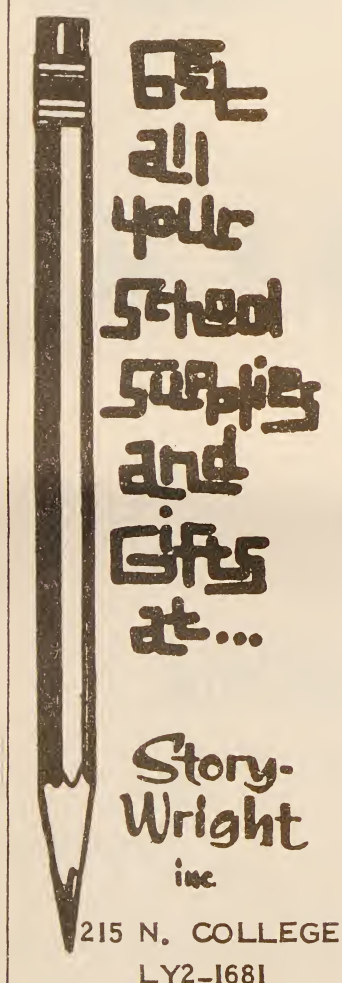 Get
all
your
School
Supplies
and
Gifts
at...
Story-
Wright
inc.
215 N. COLLEGE
LY2-1681